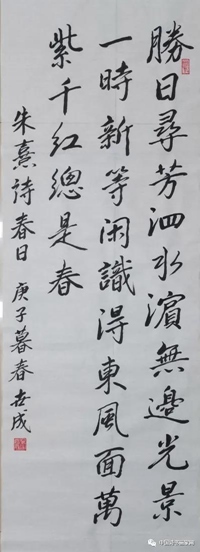 勝日尋芳泗水濱無邊光景
一時新等闲識得東風面萬
紫千红總是春
朱熹詩春日 庚子暮春世成